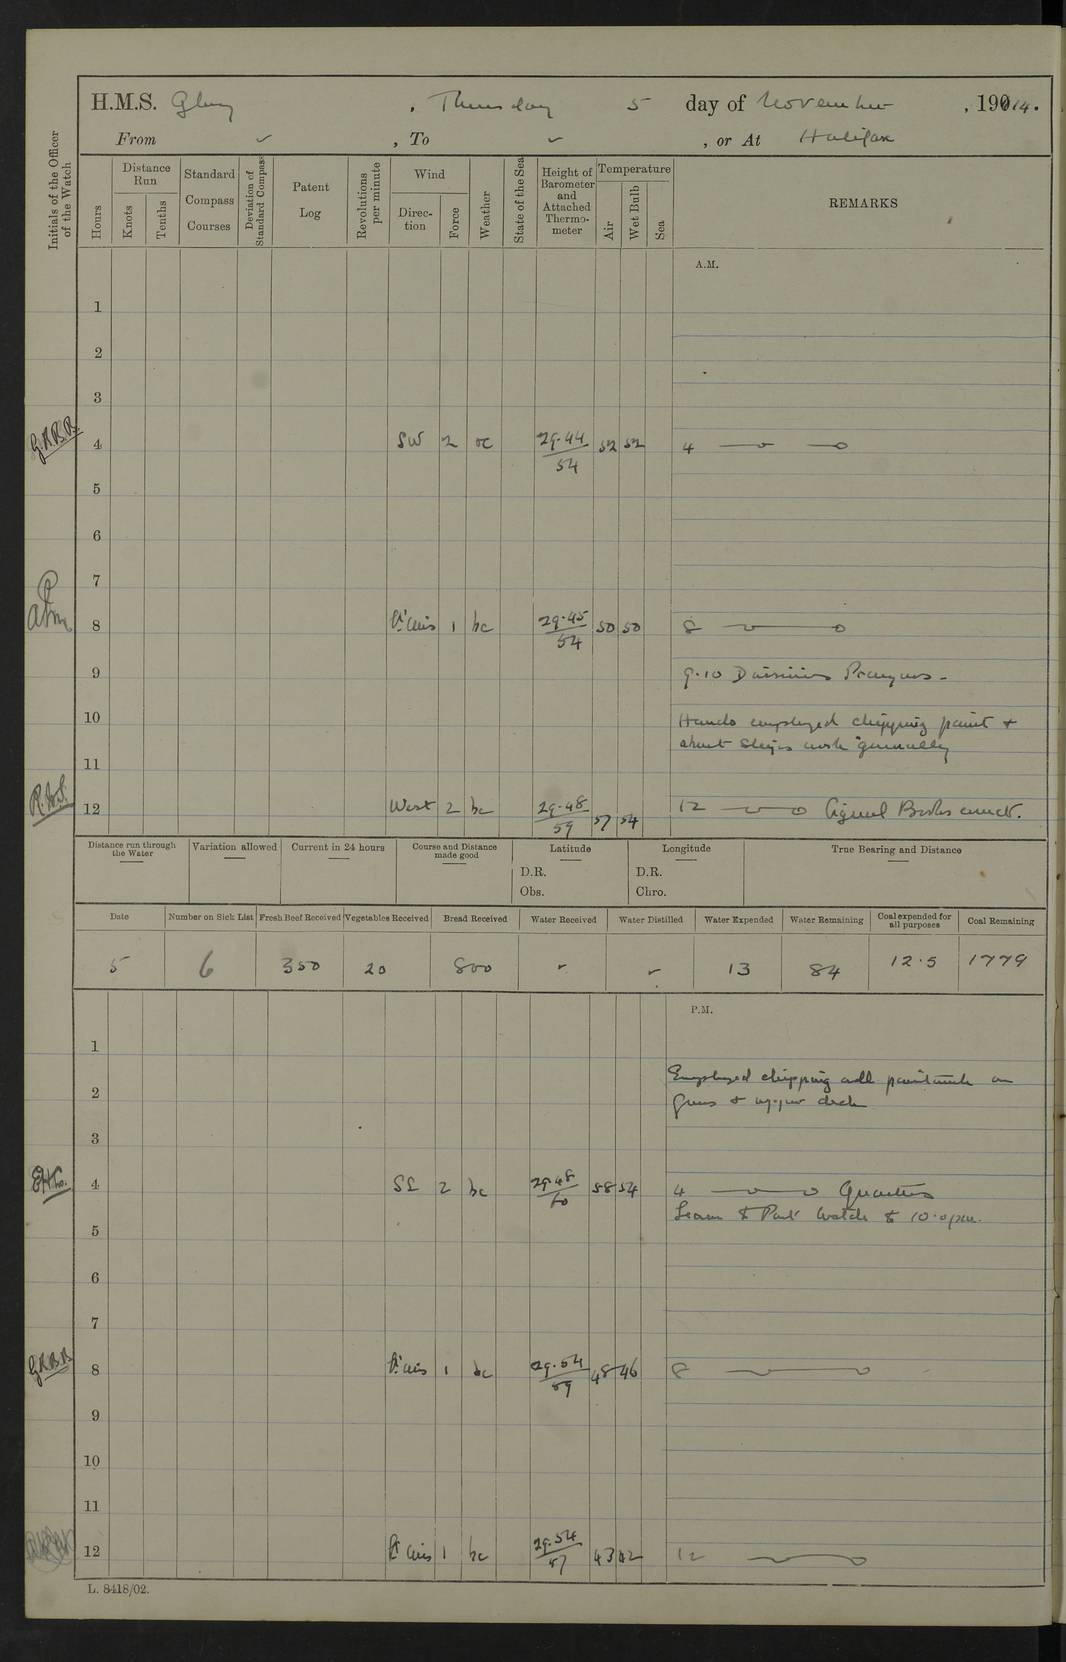 H.M.S. Glory, Thursday 5 day of November, 1914.
From ✓, To ✓, or At Halifax
Initials of the Officer of the Watch
Hours
Distance Run
Knots
Tenths
Standard Compass Courses
Deviation of Standard Compass
Patent Log
Revolutions per minute
Wind
Direction
Force
Weather
State of the Sea
Height of Barometer and Attached Thermometer
Temperature
Air
Wet Bulb
Sea
REMARKS
A.M.
1
2
3
4 SW 2 oc 29.44/54 52 52 4
5
6
7
8 Lt airs 1 bc 29.45/54 50 50 8
9 9.10 Divisions Prayers -
10 Hands employed chipping paint +
about Ships work generally
11
R.W.S. 12 West 2 bc 29.48/59 57 54 12 Signal Books correct.
Distance run through the Water
Variation allowed
Current in 24 hours
Course and Distance made good
Latitude
D.R.
Obs.
Longitude
D.R.
Chro.
True Bearing and Distance
Date
Number on Sick List
Fresh Beef Received
Vegetables Received
Bread Received
Water Received
Water Distilled
Water Expended
Water Remaining
Coal expended for all purposes
Coal Remaining
5 6 350 20 800 ✓ ✓ 13 84 12.5 1779
P.M.
1
Employed chipping and paintwork on
2 Guns + upper deck
3
4 SE 2 bc 29.48/60 58 54 4 Quarters
Leave to Port Watch to 10.0 pm.
5
6
7
G.R.B.B. 8 Lt airs 1 bc 29.54/59 48 46 8
9
10
11
12 Lt airs 1 bc 29.54/57 43 42 12
L. 8418/02.